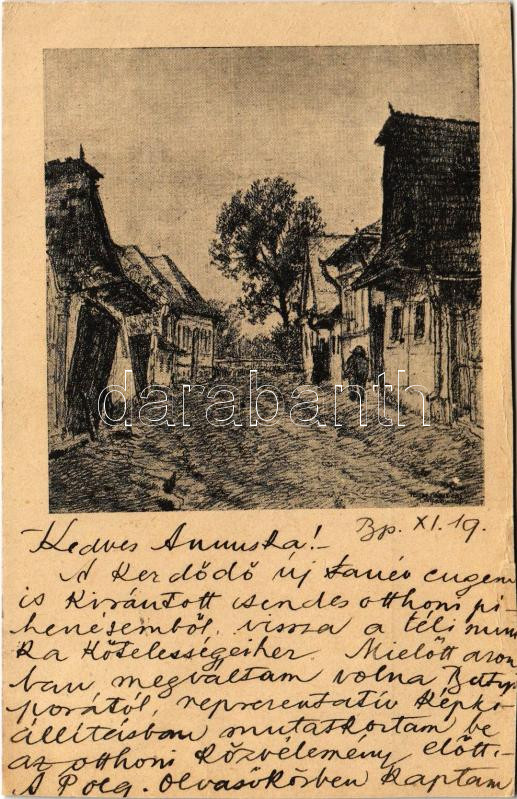 darabanth
Bp. XI. 19.
Kedves Annuska!-
A kezdődő új tanév engem
is kirántott csendes otthoni pi-
henésemből, vissza a téli mun-
ka kötelességeihez. Mielőtt azon-
ban megváltam volna
reprezentatív képki-
állításban mutatkoztam be
az otthoni közvélemény előtt.-
A Polg. Olvasókörben kaptam